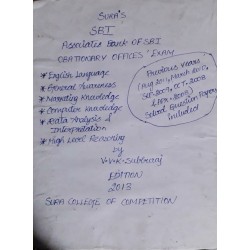 SURA'S
SBI
Associates Bank of SBI
OBATIONARY OFFICES' EXAM
* English Language
* General Awareness
* Marketing Knowledge
* Computer Knowledge
* Data Analysis &
Interpretation
* High Level Reasoning
Previous Years
Solved Question Papers
Included
by
V.V.K. Subburaj
EDITION
2013
SURA COLLEGE OF COMPETITION